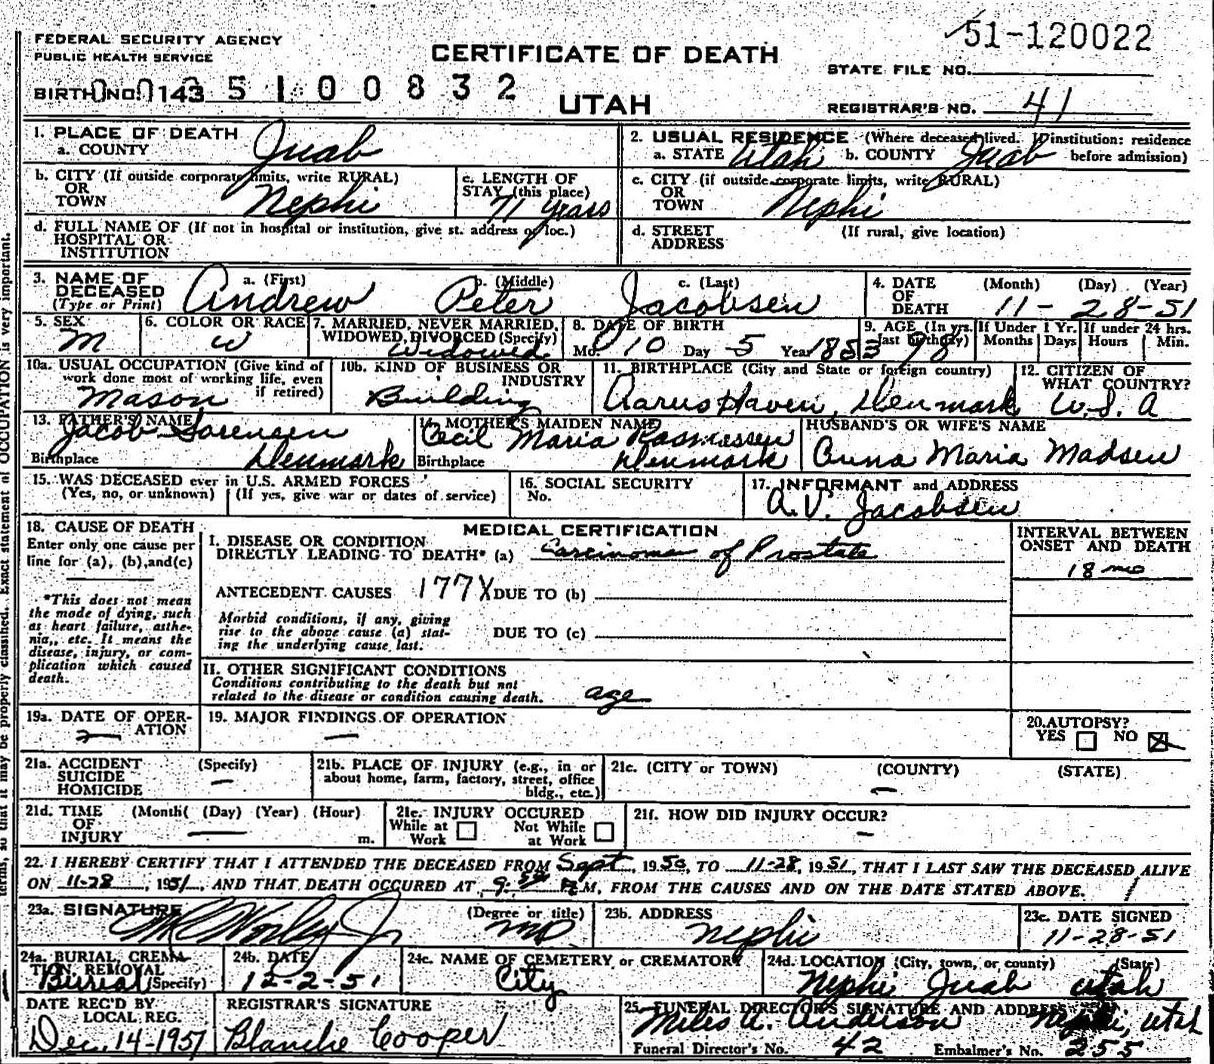 51-120022
FEDERAL SECURITY AGENCY
PUBLIC HEALTH SERVICE
CERTIFICATE OF DEATH
STATE FILE NO.
BIRTH NO. 143 5 1 0 0 8 3 2
UTAH
REGISTRAR'S NO. 41
1. PLACE OF DEATH
a. COUNTY Juab
2. USUAL RESIDENCE (Where deceased lived. If institution: residence
a. STATE Utah b. COUNTY Juab before admission)
b. CITY (If outside corporate limits, write RURAL)
OR
TOWN Nephi
c. LENGTH OF
STAY (this place)
71 years
c. CITY (if outside corporate limits, write RURAL)
OR
TOWN Nephi
d. FULL NAME OF (If not in hospital or institution, give st. address or loc.)
HOSPITAL OR
INSTITUTION
d. STREET (If rural, give location)
ADDRESS
3. NAME OF
DECEASED
(Type or Print)
a. (First) b. (Middle) c. (Last)
Andrew Peter Jacobsen
4. DATE (Month) (Day) (Year)
OF
DEATH 11-28-51
5. SEX
M
6. COLOR OR RACE
W
7. MARRIED, NEVER MARRIED,
WIDOWED, DIVORCED (Specify)
Widowed
8. DATE OF BIRTH
Mo. 10 Day 5 Year 1853
9. AGE (In yrs.
last birthday) 98
If Under 1 Yr.
Months Days
If under 24 hrs.
Hours Min.
10a. USUAL OCCUPATION (Give kind of
work done most of working life, even
if retired)
Mason
10b. KIND OF BUSINESS OR
INDUSTRY
Building
11. BIRTHPLACE (City and State or foreign country)
Aarus Haven, Denmark
12. CITIZEN OF
WHAT COUNTRY?
U.S.A
13. FATHER'S NAME
Jacob Sorensen
Birthplace Denmark
14. MOTHER'S MAIDEN NAME
Cecil Maria Rasmessen
Birthplace Denmark
HUSBAND'S OR WIFE'S NAME
Anna Maria Madsen
15. WAS DECEASED ever in U.S. ARMED FORCES
(Yes, no, or unknown) (If yes, give war or dates of service)
16. SOCIAL SECURITY
No.
17. INFORMANT and ADDRESS
A.V. Jacobsen
18. CAUSE OF DEATH
Enter only one cause per
line for (a), (b), and (c)
*This does not mean
the mode of dying, such
as heart failure, asthe-
nia, etc. It means the
disease, injury, or com-
plication which caused
death.
MEDICAL CERTIFICATION
I. DISEASE OR CONDITION
DIRECTLY LEADING TO DEATH* (a) Carcinoma of Prostate
INTERVAL BETWEEN
ONSET AND DEATH
18 mo
ANTECEDENT CAUSES 177X DUE TO (b)
Morbid conditions, if any, giving
rise to the above cause (a) stat-
ing the underlying cause last.
DUE TO (c)
II. OTHER SIGNIFICANT CONDITIONS
Conditions contributing to the death but not
related to the disease or condition causing death. age
19a. DATE OF OPER-
ATION
19. MAJOR FINDINGS OF OPERATION
20. AUTOPSY?
YES NO
21a. ACCIDENT (Specify)
SUICIDE
HOMICIDE
21b. PLACE OF INJURY (e.g., in or
about home, farm, factory, street, office
bldg., etc.)
21c. (CITY or TOWN) (COUNTY) (STATE)
21d. TIME (Month) (Day) (Year) (Hour)
OF
INJURY m.
21e. INJURY OCCURED
While at Work Not While at Work
21f. HOW DID INJURY OCCUR?
22. I HEREBY CERTIFY THAT I ATTENDED THE DECEASED FROM Sept, 1950, TO 11-28, 1951, THAT I LAST SAW THE DECEASED ALIVE
ON 11-28, 1951, AND THAT DEATH OCCURED AT 9 M, FROM THE CAUSES AND ON THE DATE STATED ABOVE.
23a. SIGNATURE (Degree or title)
MD
23b. ADDRESS
Nephi
23c. DATE SIGNED
11-28-51
24a. BURIAL, CREMA
TION, REMOVAL
Burial (Specify)
24b. DATE
12-2-51
24c. NAME OF CEMETERY or CREMATORY
City
24d. LOCATION (City, town, or county) (State)
Nephi Juab Utah
DATE REC'D BY
LOCAL REG.
Dec. 14-1951
REGISTRAR'S SIGNATURE
Blanche Cooper
25. FUNERAL DIRECTOR'S SIGNATURE AND ADDRESS
Miles A. Anderson Nephi, Utah
Funeral Director's No. 42 Embalmer's No. 255
terms, so that it may be properly classified. Exact statement of OCCUPATION is very important.